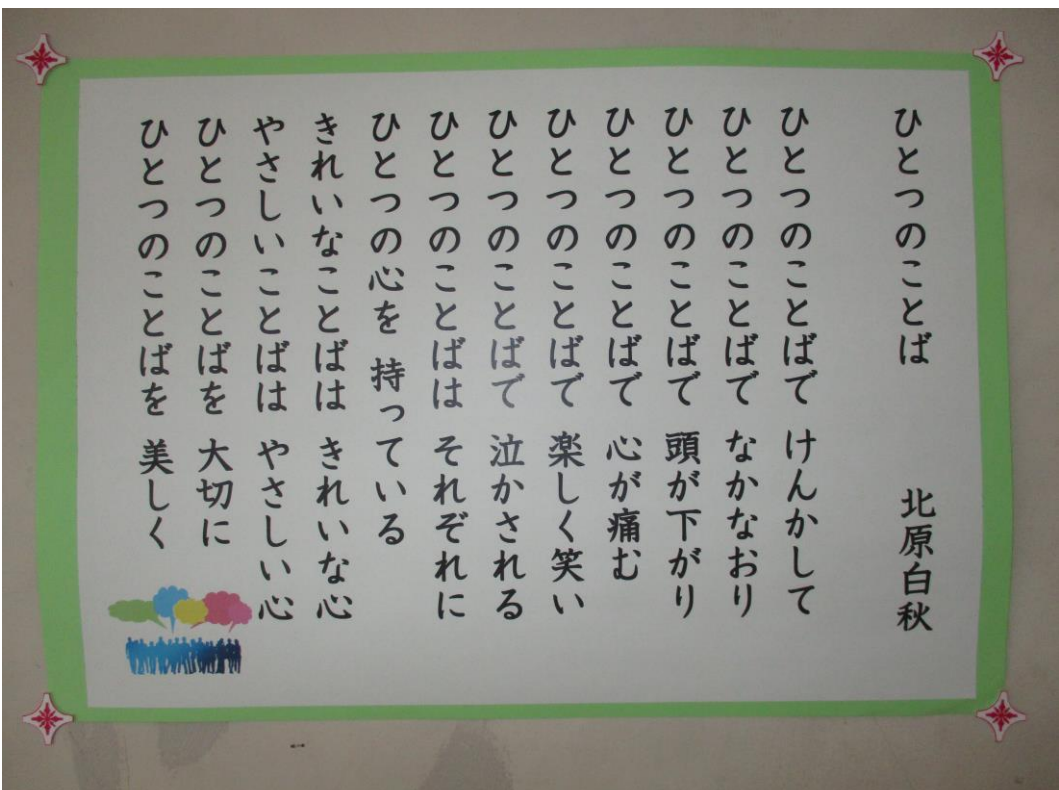 ひとつのことば　北原白秋
ひとつのことばで　けんかして
ひとつのことばで　なかなおり
ひとつのことばで　頭が下がり
ひとつのことばで　心が痛む
ひとつのことばで　楽しく笑い
ひとつのことばで　泣かされる
ひとつのことばは　それぞれに
ひとつの心を　持っている
きれいなことばは　きれいな心
やさしいことばは　やさしい心
ひとつのことばを　大切に
ひとつのことばを　美しく